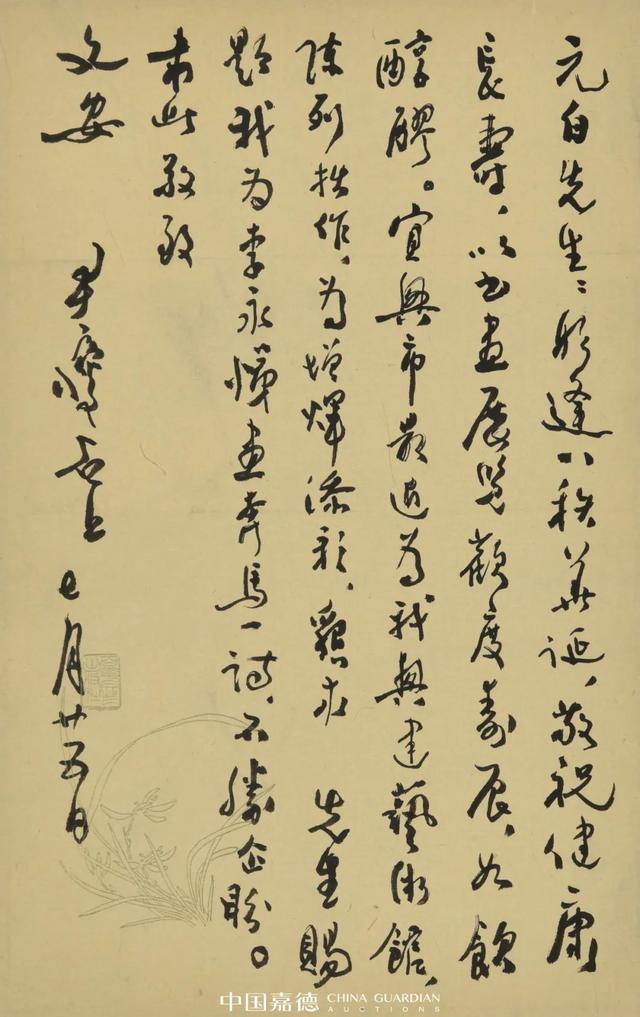 元白先生：欣逢八秩华诞，敬祝健康
长寿，以书画展览欢度寿辰，如饮
醇醪。宜兴市最近为我兴建艺术馆，
陈列拙作，为增辉添彩，恳求 先生赐
题我为李永悌画奔马一诗，不胜企盼。
肃此敬致
文安
尹瘦石上 七月廿五日
中国嘉德 CHINA GUARDIAN
AUCTIONS